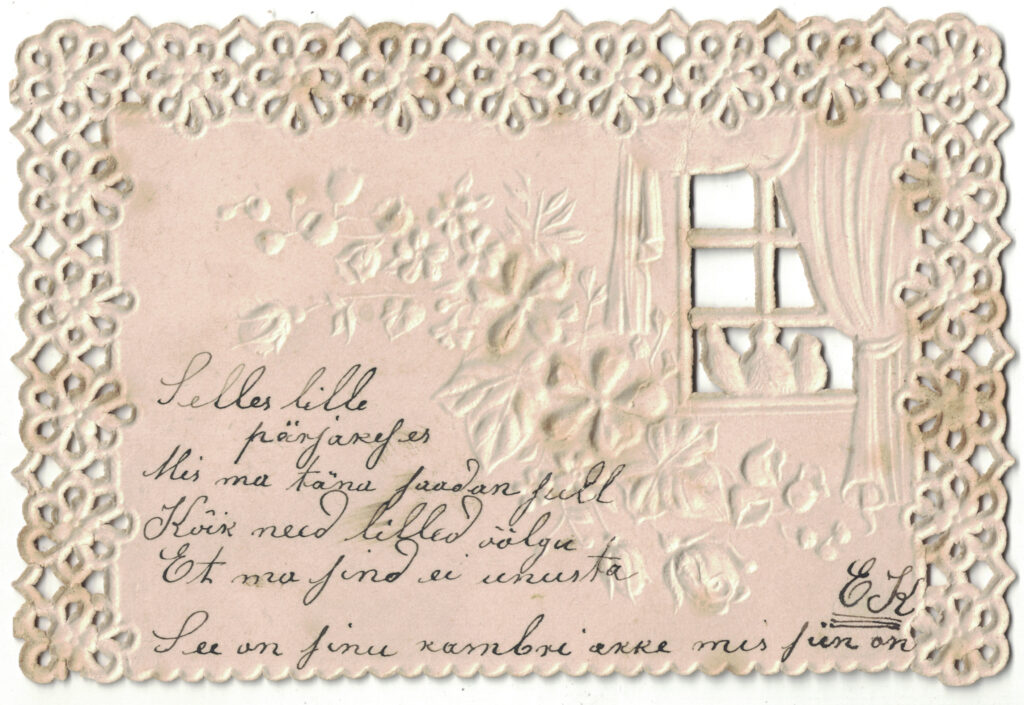 Selles lille
pärjakeses
Mis ma täna saadan sull
Kõik need lilled öölgu
Et ma sind ei unusta
EK
See on sinu kambri akke mis siin on